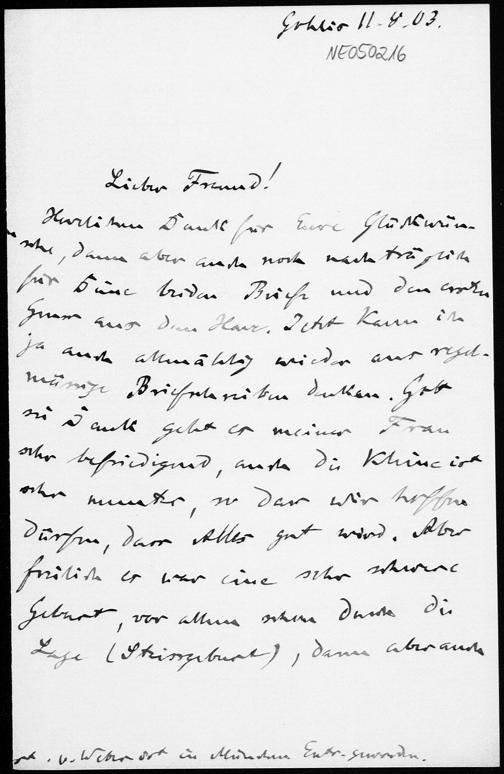 Gohlis 11.8.03.
NE050216
Lieber Freund!
Herzlichen Dank für Eure Glückwün-
sche, dann aber auch noch nachträglich
für Deine beiden Briefe und den ersten
Gruss aus dem Harz. Jetzt kann ich
ja auch allmählig wieder ans regel-
mässige Briefschreiben denken. Gott
sei Dank geht es meiner Frau
sehr befriedigend, auch die Kleine ist
sehr munter, so dass wir hoffen
dürfen, dass Alles gut wird. Aber
freilich es war eine sehr schwere
Geburt, vor allem schon durch die
Lage (Steissgeburt), dann aber auch
v. Weber ist in München geworden.